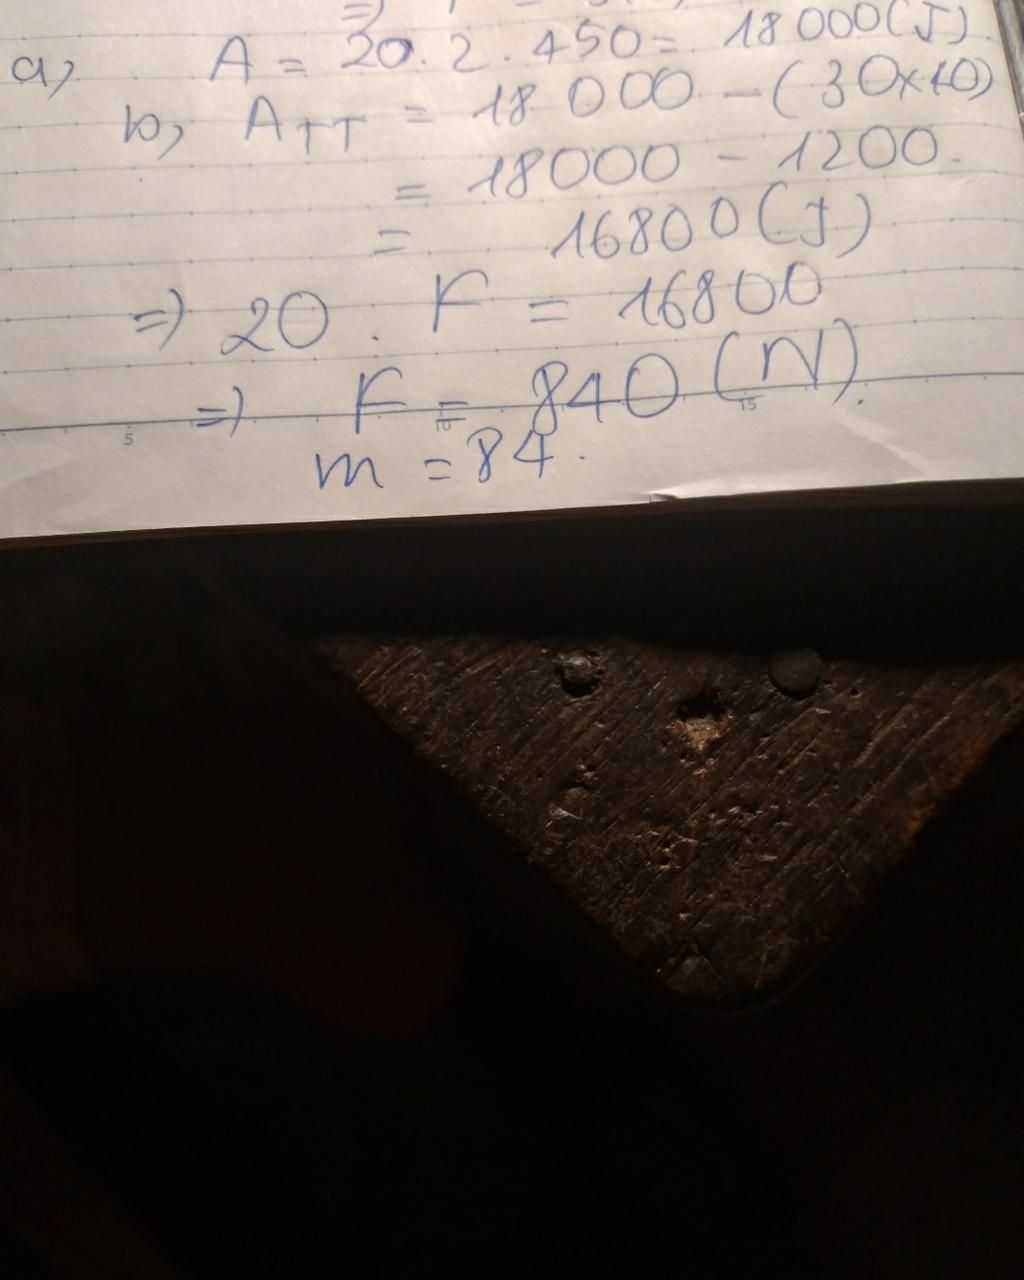 a, A = 20. 2. 450 = 18 000 (J)
b, ATT = 18 000 - (30x40)
= 18000 - 1200.
= 16800 (J)
=) 20 . F = 16800
=) F = 840 (N).
5 10 15
m = 84.